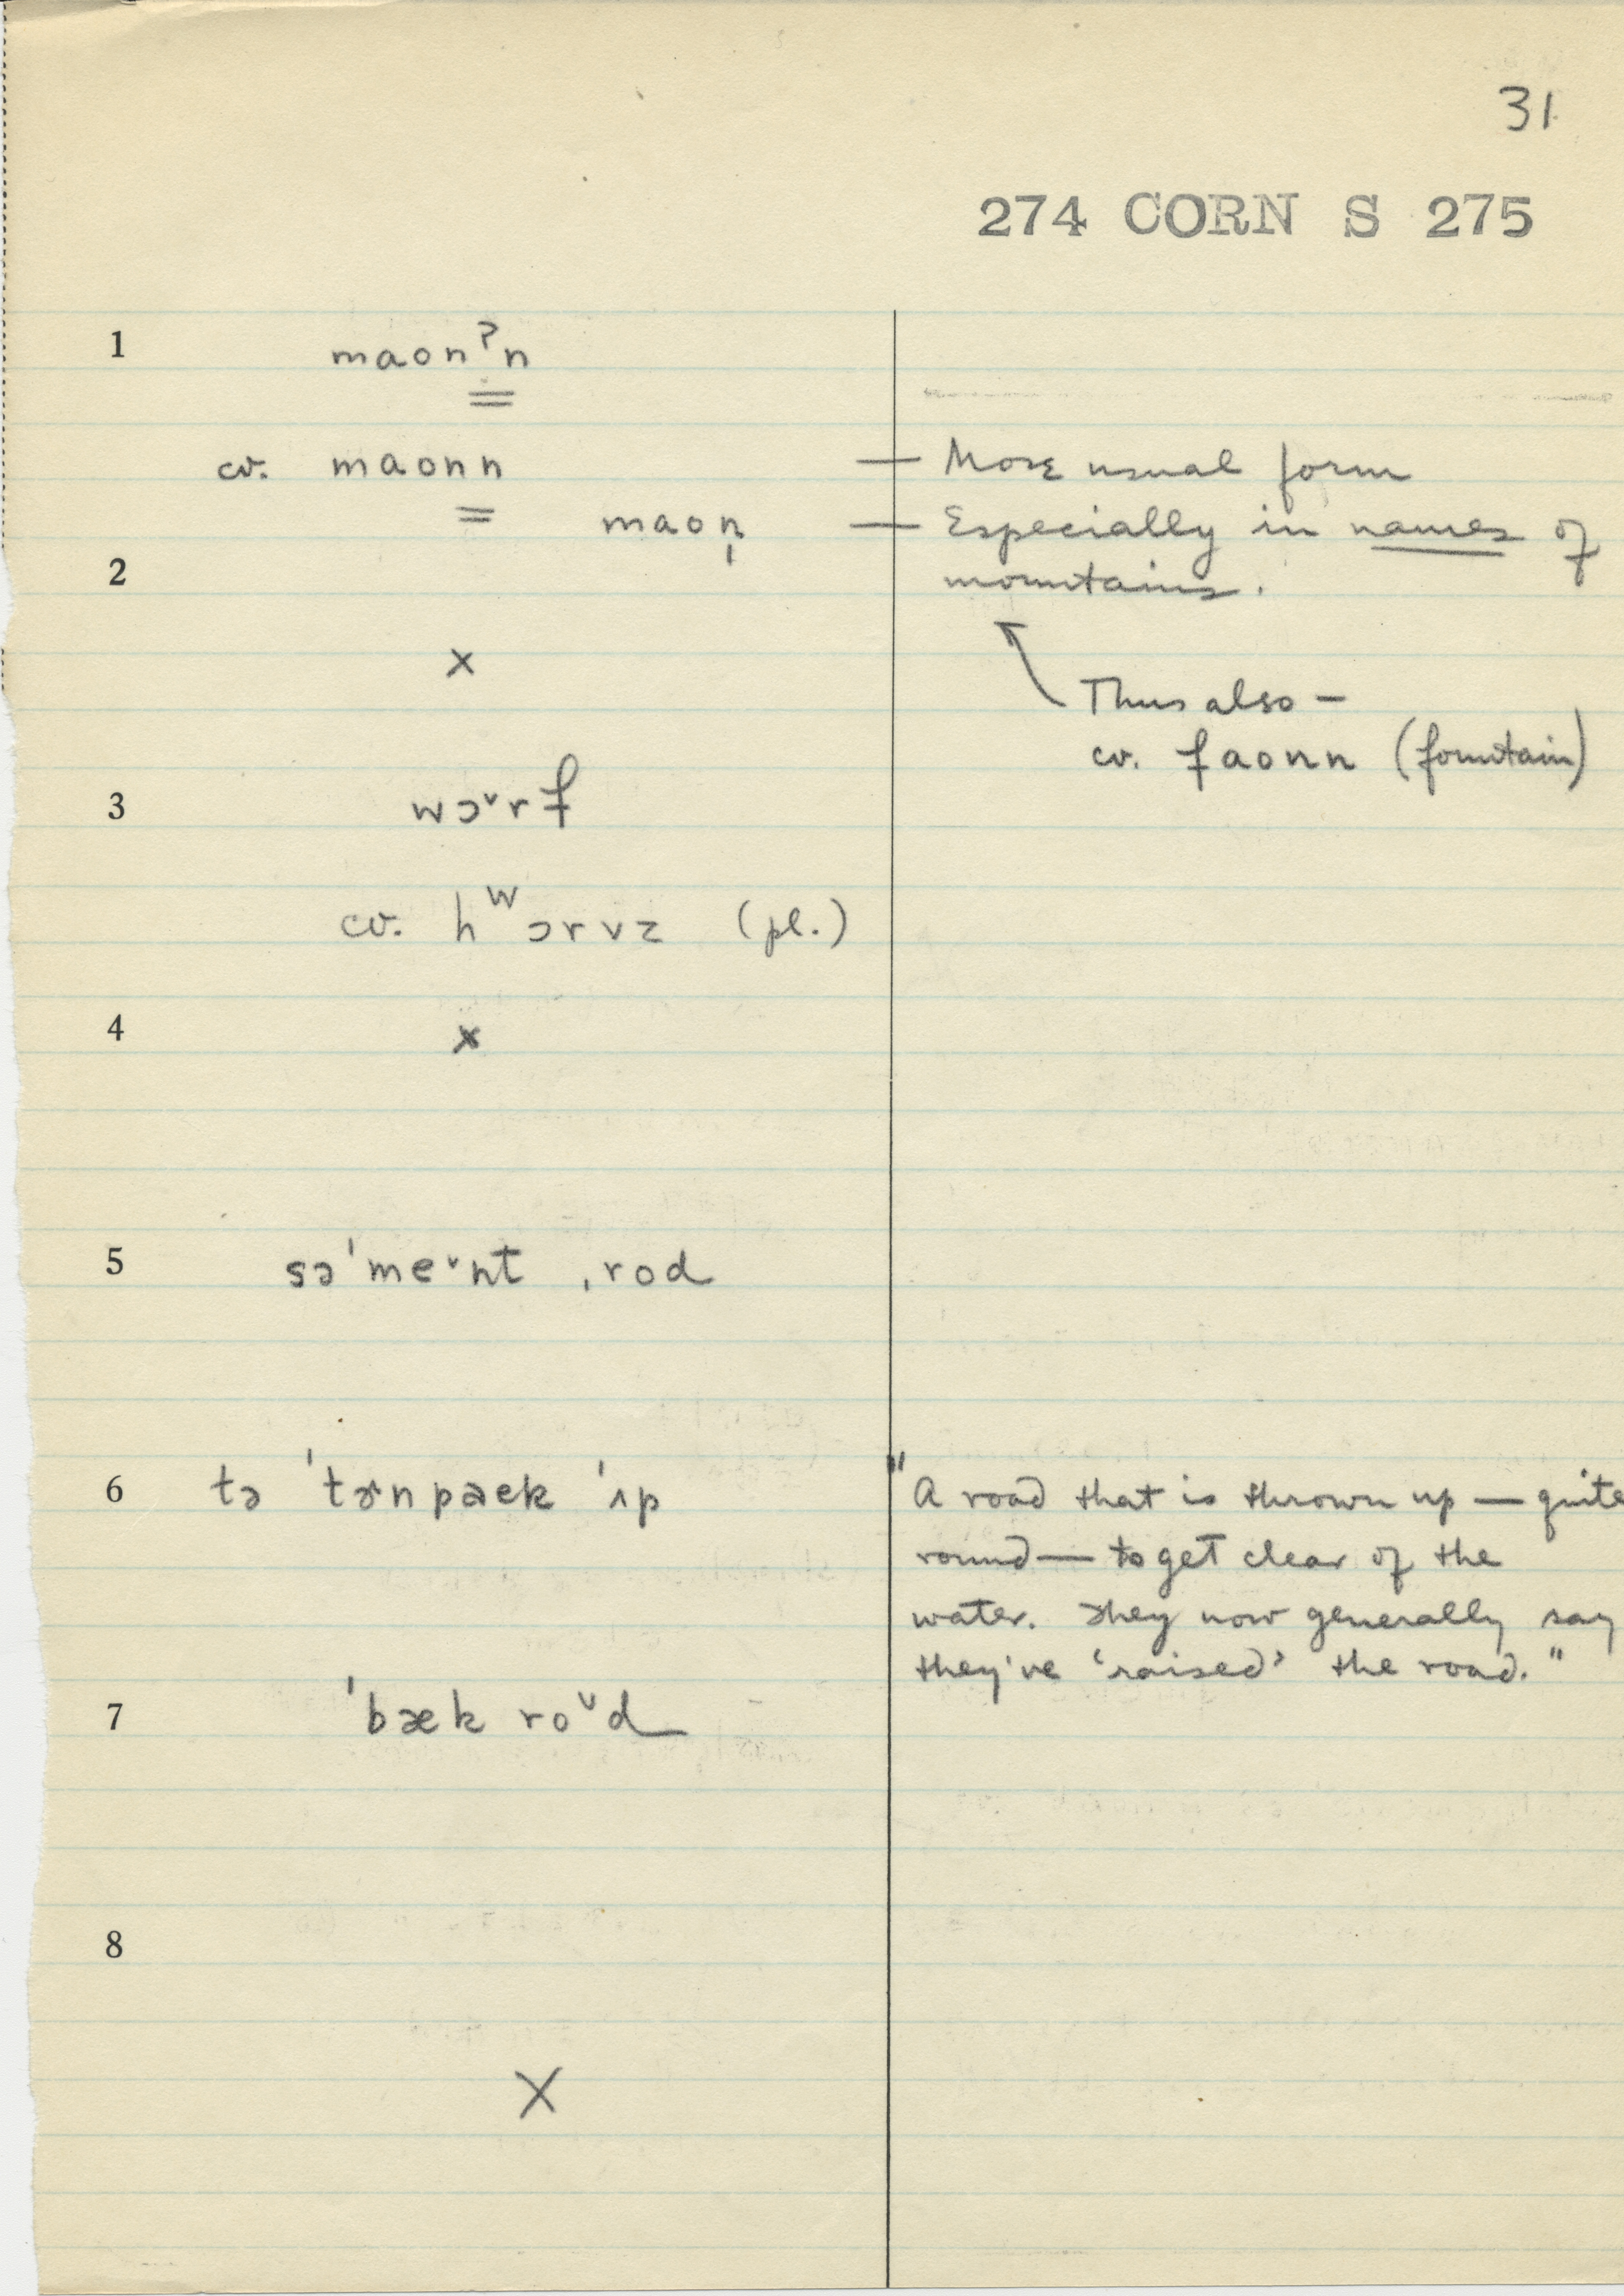 31
274 CORN S 275
1 maonˀn
=
cv. maonn — More usual form
= maon̩ — Especially in names of
2 mountains.
x
Thus also —
cv. faonn (fountain)
3 wɔˇrf
cv. hʷɔrvz (pl.)
4 x
5 sə'meˇnt ˌrod
6 tə 'tɚnpæk 'ʌp "A road that is thrown up — quite
round — to get clear of the
water. They now generally say
they've 'raised' the road."
7 'bæk roˇd
8
X